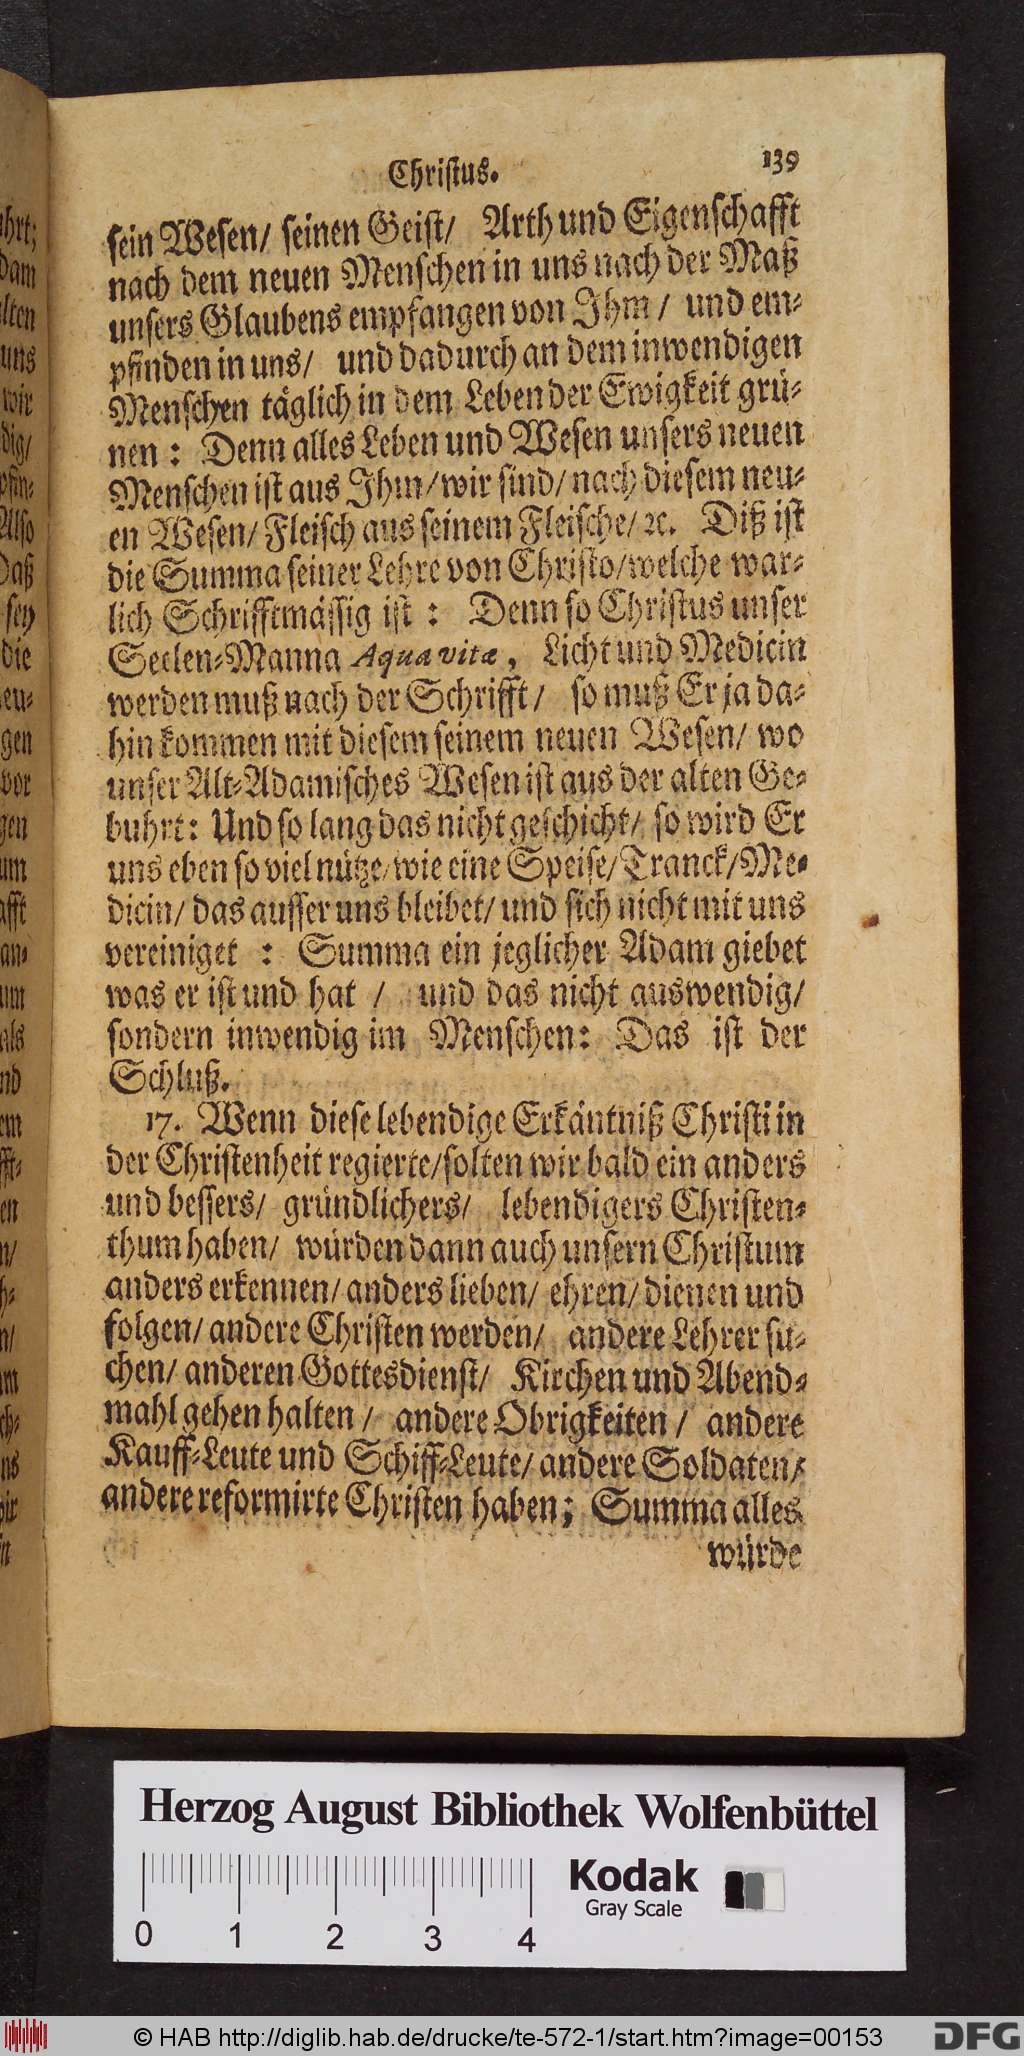 Christus. 139
sein Wesen/ seinen Geist/ Arth und Eigenschafft
nach dem neuen Menschen in uns nach der Maß
unsers Glaubens empfangen von Ihm / und em-
pfinden in uns/ und dadurch an dem inwendigen
Menschen täglich in dem Leben der Ewigkeit grü-
nen : Denn alles Leben und Wesen unsers neuen
Menschen ist aus Ihm/ wir sind/ nach diesem neu-
en Wesen/ Fleisch aus seinem Fleische/ ꝛc. Diß ist
die Summa seiner Lehre von Christo/ welche war-
lich Schrifftmässig ist : Denn so Christus unser
Seelen-Manna Aqua vitæ, Licht und Medicin
werden muß nach der Schrifft/ so muß Er ja da-
hin kommen mit diesem seinem neuen Wesen/ wo
unser Alt-Adamisches Wesen ist aus der alten Ge-
buhrt: Und so lang das nicht geschicht/ so wird Er
uns eben so viel nütze/ wie eine Speise/ Tranck/ Me-
dicin/ das ausser uns bleibet/ und sich nicht mit uns
vereiniget : Summa ein jeglicher Adam giebet
was er ist und hat / und das nicht auswendig/
sondern inwendig im Menschen: Das ist der
Schluß.
17. Wenn diese lebendige Erkäntniß Christi in
der Christenheit regierte/ solten wir bald ein anders
und bessers/ gründlichers/ lebendigers Christen-
thum haben/ würden dann auch unsern Christum
anders erkennen/ anders lieben/ ehren/ dienen und
folgen/ andere Christen werden/ andere Lehrer su-
chen/ anderen Gottesdienst/ Kirchen und Abend-
mahl gehen halten / andere Obrigkeiten / andere
Kauff-Leute und Schiff-Leute/ andere Soldaten/
andere reformirte Christen haben; Summa alles
würde
Herzog August Bibliothek Wolfenbüttel
0 1 2 3 4
Kodak
Gray Scale
© HAB http://diglib.hab.de/drucke/te-572-1/start.htm?image=00153
DFG